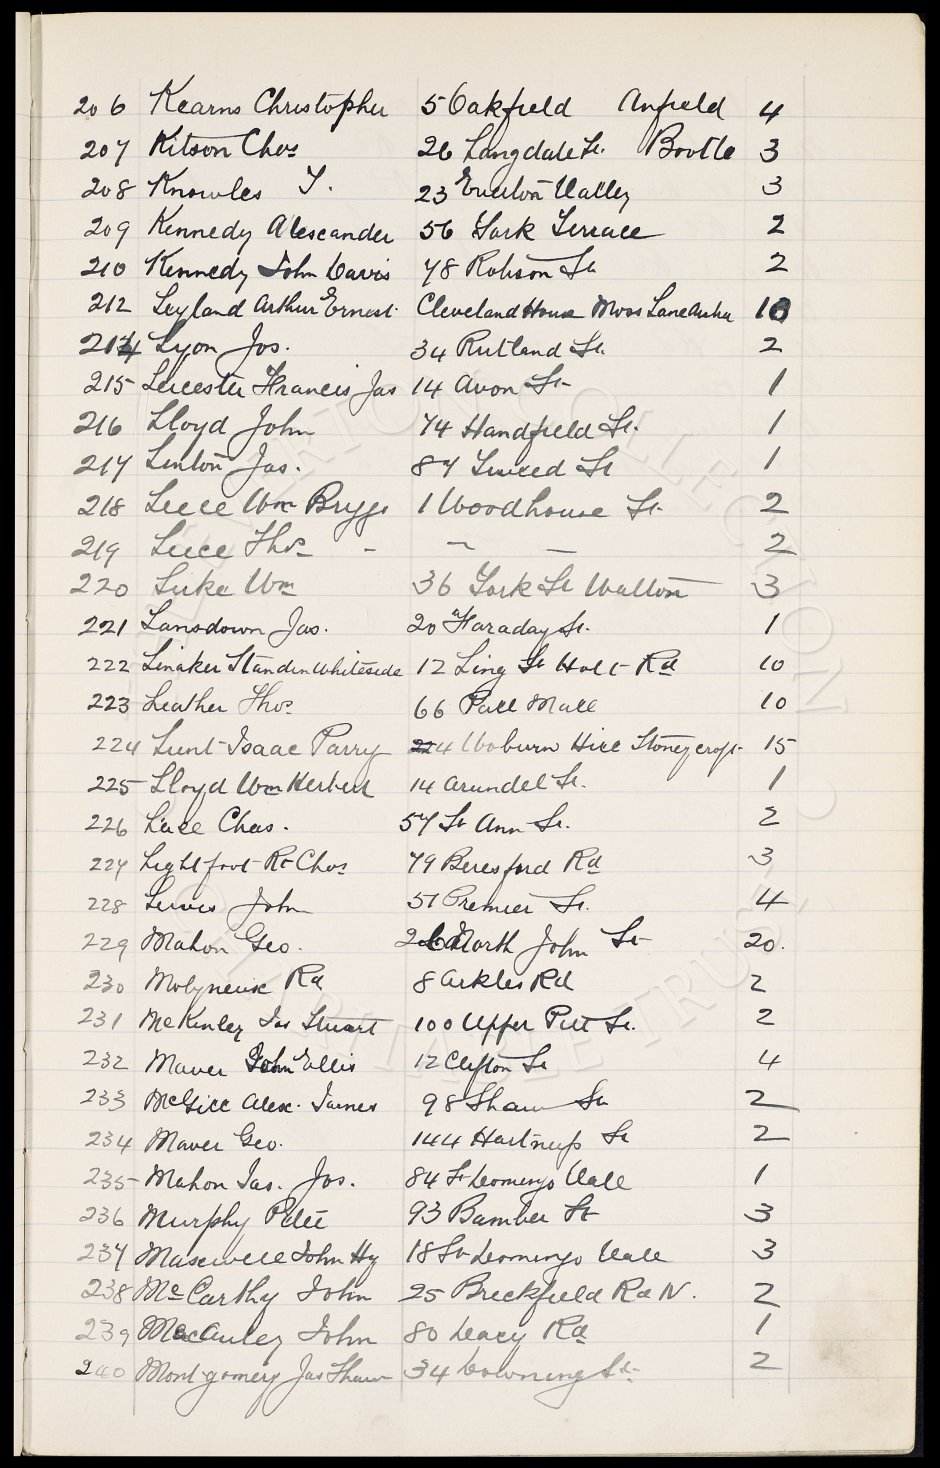 206 Kearns Christopher 5 Oakfield Anfield 4
207 Kitson Chas 26 Langdale St. Bootle 3
208 Knowles T. 23 Everton Valley 3
209 Kennedy Alexander 56 York Terrace 2
210 Kennedy John Davis 78 Robson St 2
212 Leyland Arthur Ernest. Cleveland House Moss Lane 10
214 Lyon Jos. 34 Rutland St. 2
215 Leicester Francis Jas 14 Avon St 1
216 Lloyd John 74 Handfield St. 1
217 Linton Jas. 87 Tweed St 1
218 Leece Wm Briggs 1 Woodhouse St. 2
219 Leece Thos - - - 2
220 Luke Wm 36 York St Walton 3
221 Lansdown Jas. 20 Faraday St. 1
222 Linaker Standen Whiteside 12 Ling St Holt Rd 10
223 Leather Thos 66 Pall Mall 10
224 Lunt Isaac Parry 4 Woburn Hill Stoneycroft 15
225 Lloyd Wm Herbert 14 Arundel St. 1
226 Chas. 57 St Ann St. 2
227 Lightfoot Rt Chas 79 Beresford Rd 3
228 Lewis John 51 Premier St. 4
229 Mahon Geo. North John St 20.
230 Molyneux Rd 8 Arkles Rd 2
231 McKinley Jas Stuart 100 Upper Pitt St. 2
232 Maver John Ellis 12 Clifton St 4
233 McGill Alex. James 98 Shaw St 2
234 Maver Geo. 144 Hartnup St 2
235 Mahon Jas. Jos. 84 St Domingo Vale 1
236 Murphy Peter 93 Bamber St 3
237 Maxwell John Hy 18 St Domingo Vale 3
238 McCarthy John 25 Breckfield Rd N. 2
239 MacAuley John 80 Dacy Rd 1
240 Montgomery Jas Shaw 34 Downing St. 2
EVERTON COLLECTION
CHARITABLE TRUST